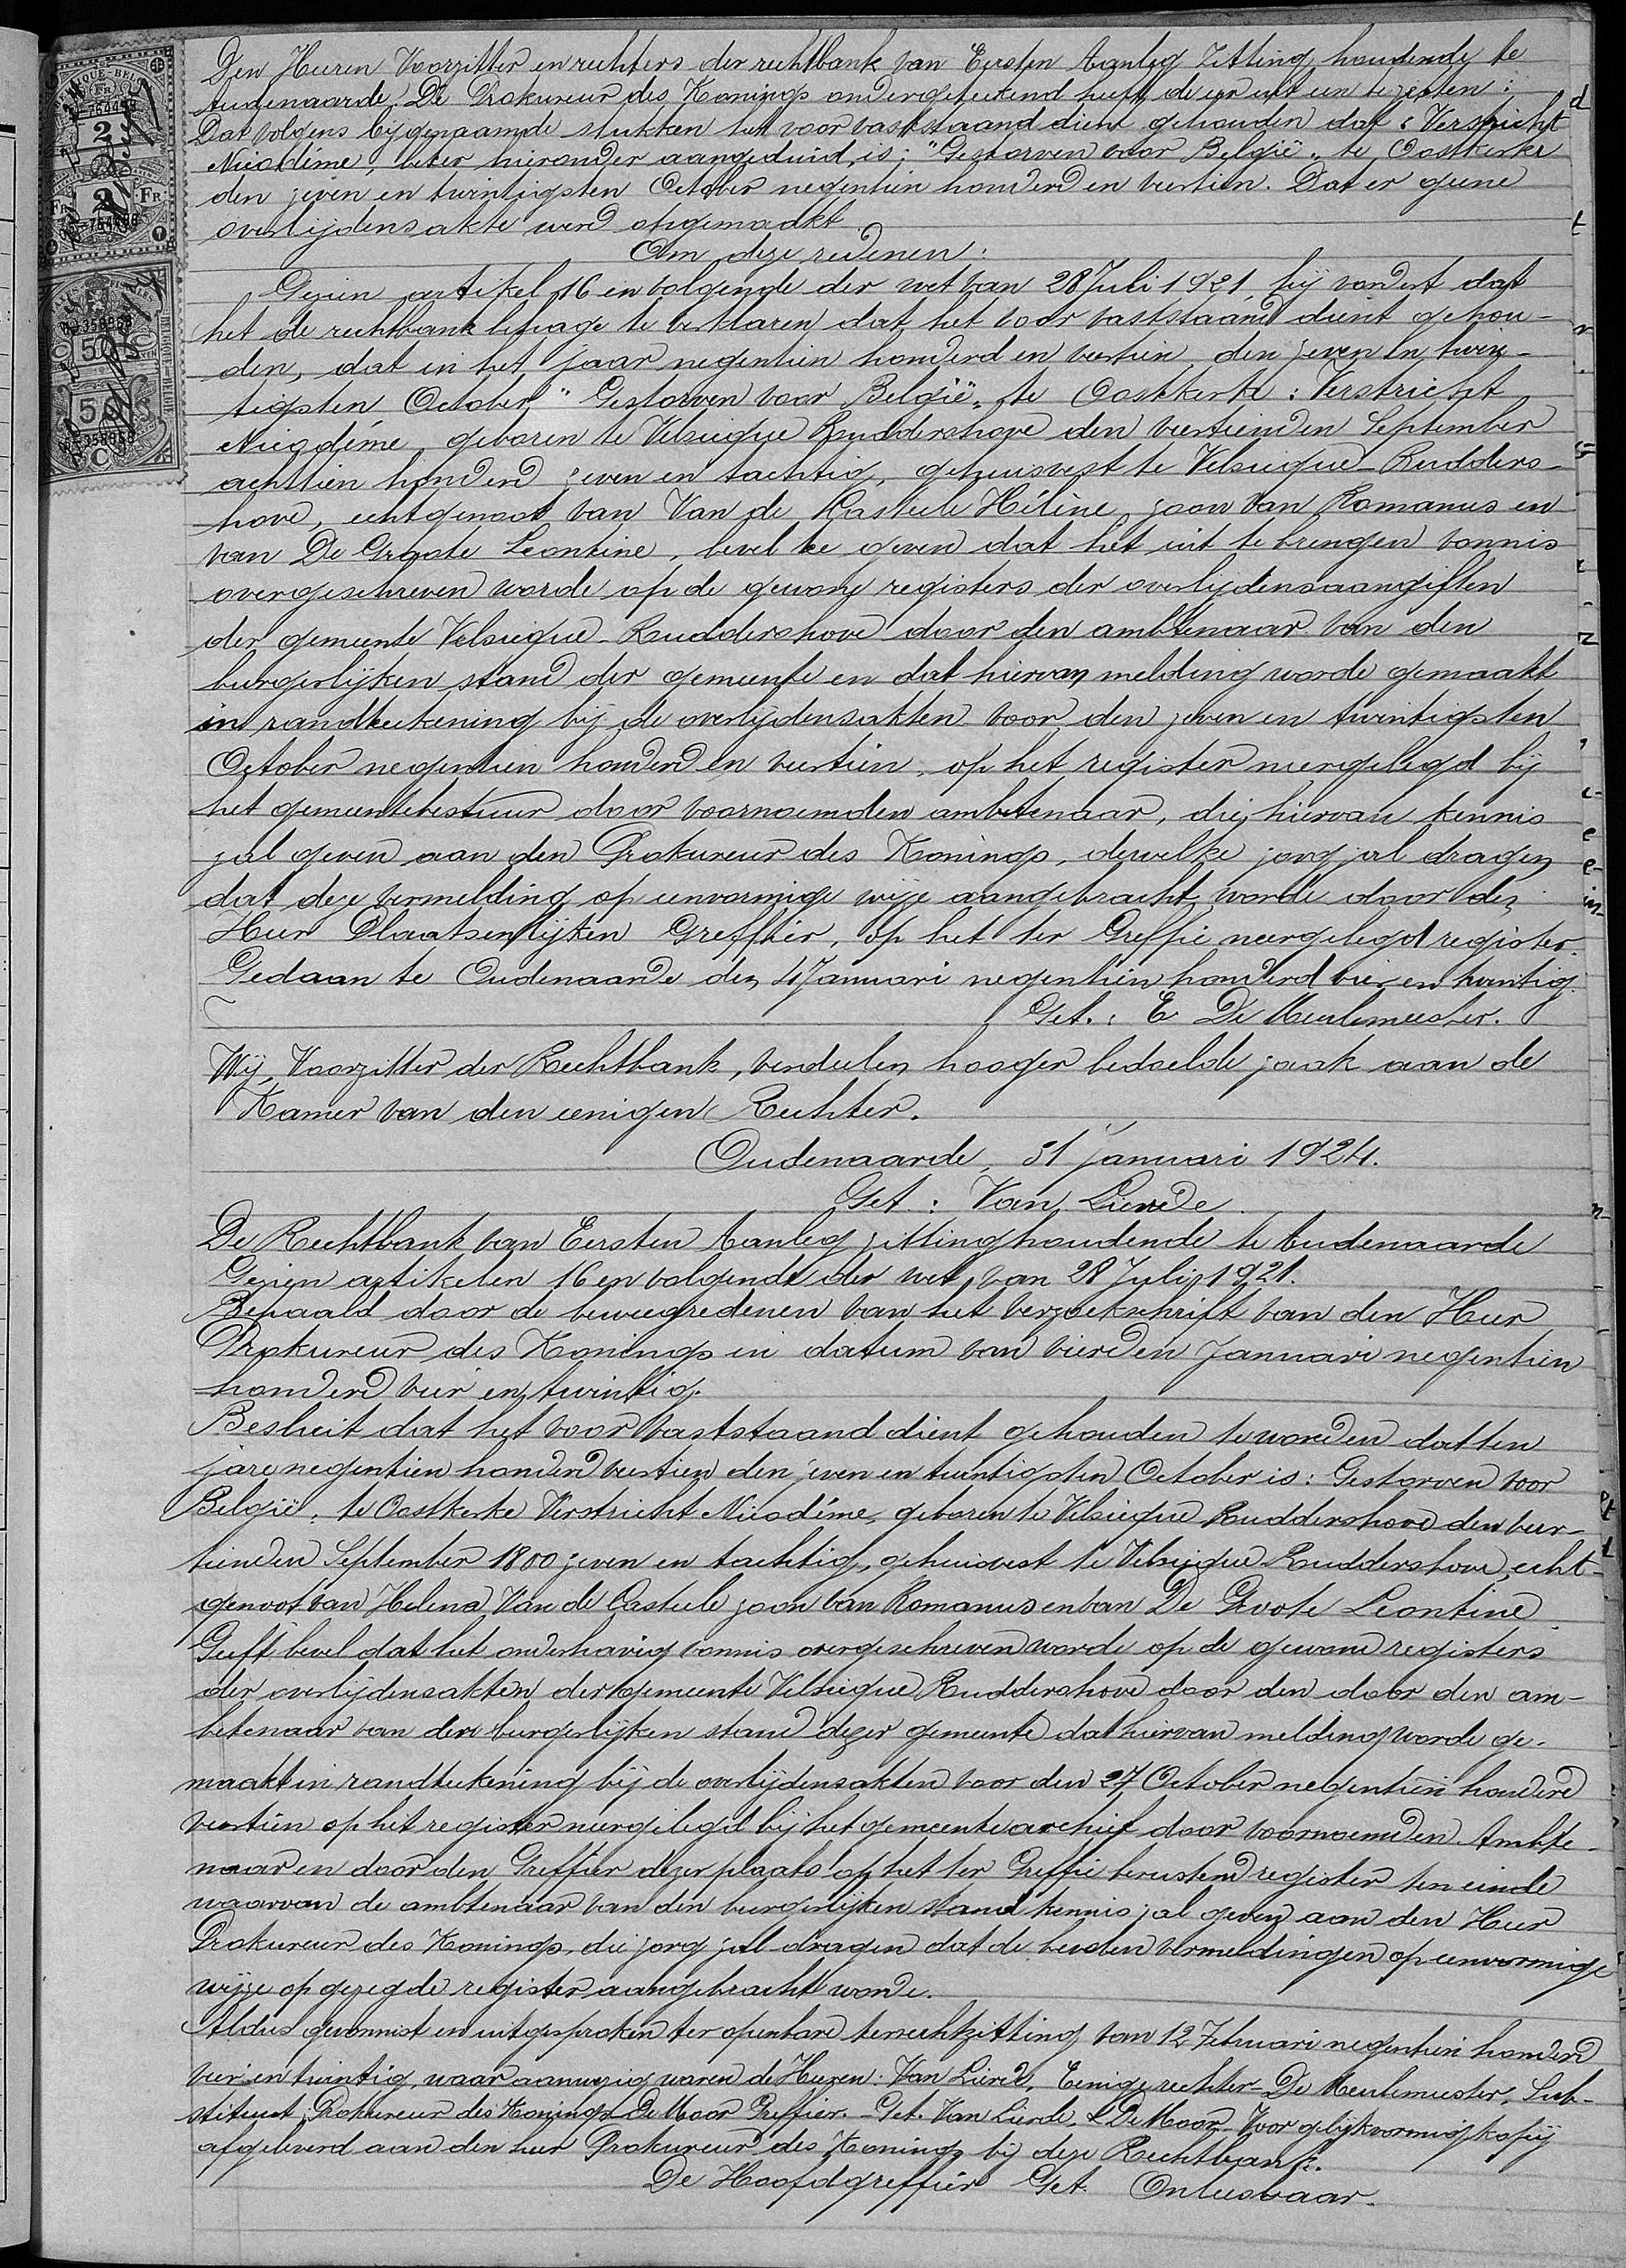 Den Heeren Voorzitter en rechters der rechtbank van Eersten Aanleg Zitting houdende te
Audenaarde. De Prokureur des Konings ondergeteekend heeft de eer uit een te zetten:
Dat volgens bijgenaamde stukken het voor vaststaand dient gehouden dat: Verstricht
Nicodéme, beter hieronder aangeduid, is: "Gestorven voor België" te Oostkerke
den zeven en twintigsten October negentien honderd en veertien. Dat er geene
overlijdensakte werd opgemaakt
Om deze redenen:
Gezien artikel 16 en volgende der wet van 28 Juli 1921, hij vordert dat
het de rechtbank behage te verklaren dat het voor vaststaand dient gehou-
den, dat in het jaar negentien honderd en veertien den zeven en twin-
tigsten October, "Gestorven voor België" te Oostkerke: Verstricht
Nicodéme, geboren te Velsicque Ruddershove den veertienden September
achttien honderd zeven en tachtig, gehuisvest te Velsicque-Rudders-
hove, echtgenoot van Van de Kasteele Hélène, zoon van Romanus en
van De Groote Leontine, bevel te geven dat het uit te brengen vonnis
overgeschreven worde op de gewone registers der overlijdensaangiften
der gemeente Velsicque-Ruddershove door den ambtenaar van den
burgerlijken stand der gemeente en dat hiervan melding worde gemaakt
in randteekening bij de overlijdensakten voor den zeven en twintigsten
October negentien honderd en veertien, op het register neergelegd bij
het gemeentebestuur door voornoemden ambtenaar, die hiervan kennis
zal geven aan den Prokureur des Konings, dewelke zorg zal dragen
dat deze vermelding op eenvormige wijze aangebracht worde door den
Heer Plaatsenlijken Greffier, op het ter Greffie neergelegd register.
Gedaan te Oudenaarde den 4 Januari negentien honderd vier en twintig.
Get.: E De Meulemeester.
Wij, Voorzitter der Rechtbank, verdeelen hooger bedoelde zaak aan de
Kamer van den eenigen Rechter.
Oudenaarde, 31 Januari 1924.
Get.: Van Lierde.
De Rechtbank van Eersten Aanleg zittinghoudende te Audenaarde
Gezien artikelen 16 en volgende der wet van 28 Juli 1921.
Bepaald door de beweegredenen van het verzoekschrift van den Heer
Prokureur des Konings in datum van vierden Januari negentien
honderd vier en twintig.
Besluit dat het voor vaststaand dient gehouden te worden dat ten
jare negentien honderd veertien den zeven en twintigsten October is: Gestorven voor
België: te Oostkerke Verstricht Nicodéme, geboren te Velsicque Ruddershove den veer-
tienden September 1800 zeven en tachtig, gehuisvest te Velsicque Ruddershove, echt-
genoot van Helena Van de Casteele zoon van Romanus en van De Groote Leontine
Geeft bevel dat het onderhavig vonnis overgeschreven worde op de gewone registers
der overlijdensakten der gemeente Velsicque Ruddershove door den door den am-
btenaar van den burgerlijken stand dezer gemeente dat hiervan melding worde ge-
maakt in randteekening bij de overlijdensakten voor den 27 October negentien honderd
veertien op het register neergelegd bij het gemeentearchief door voornoemden Ambte-
naar en door den Greffier dezer plaats op het ter Greffie berustend register ten einde
waarvan de ambtenaar van den burgerlijken stand kennis zal geven aan den Heer
Prokureur des Konings, die zorg zal dragen dat de beiden vermeldingen op eenvormige
wijze op gezegde register aangebracht worde.
Aldus gevonnist en uitgesproken ter openbare terechtzitting van 12 Februari negentien honderd
vier en twintig, waar aanwezig waren de Heeren: Van Lierde, Eenige rechter - De Meulemeester, Sub-
stituut Prokureur des Konings De Moor Greffier. - Get. Van Lierde, & De Moor. Voor gelijkvormig kopij
afgeleverd aan den heer Prokureur des Konings bij deze Rechtbank.
De Hoofdgreffier Get.